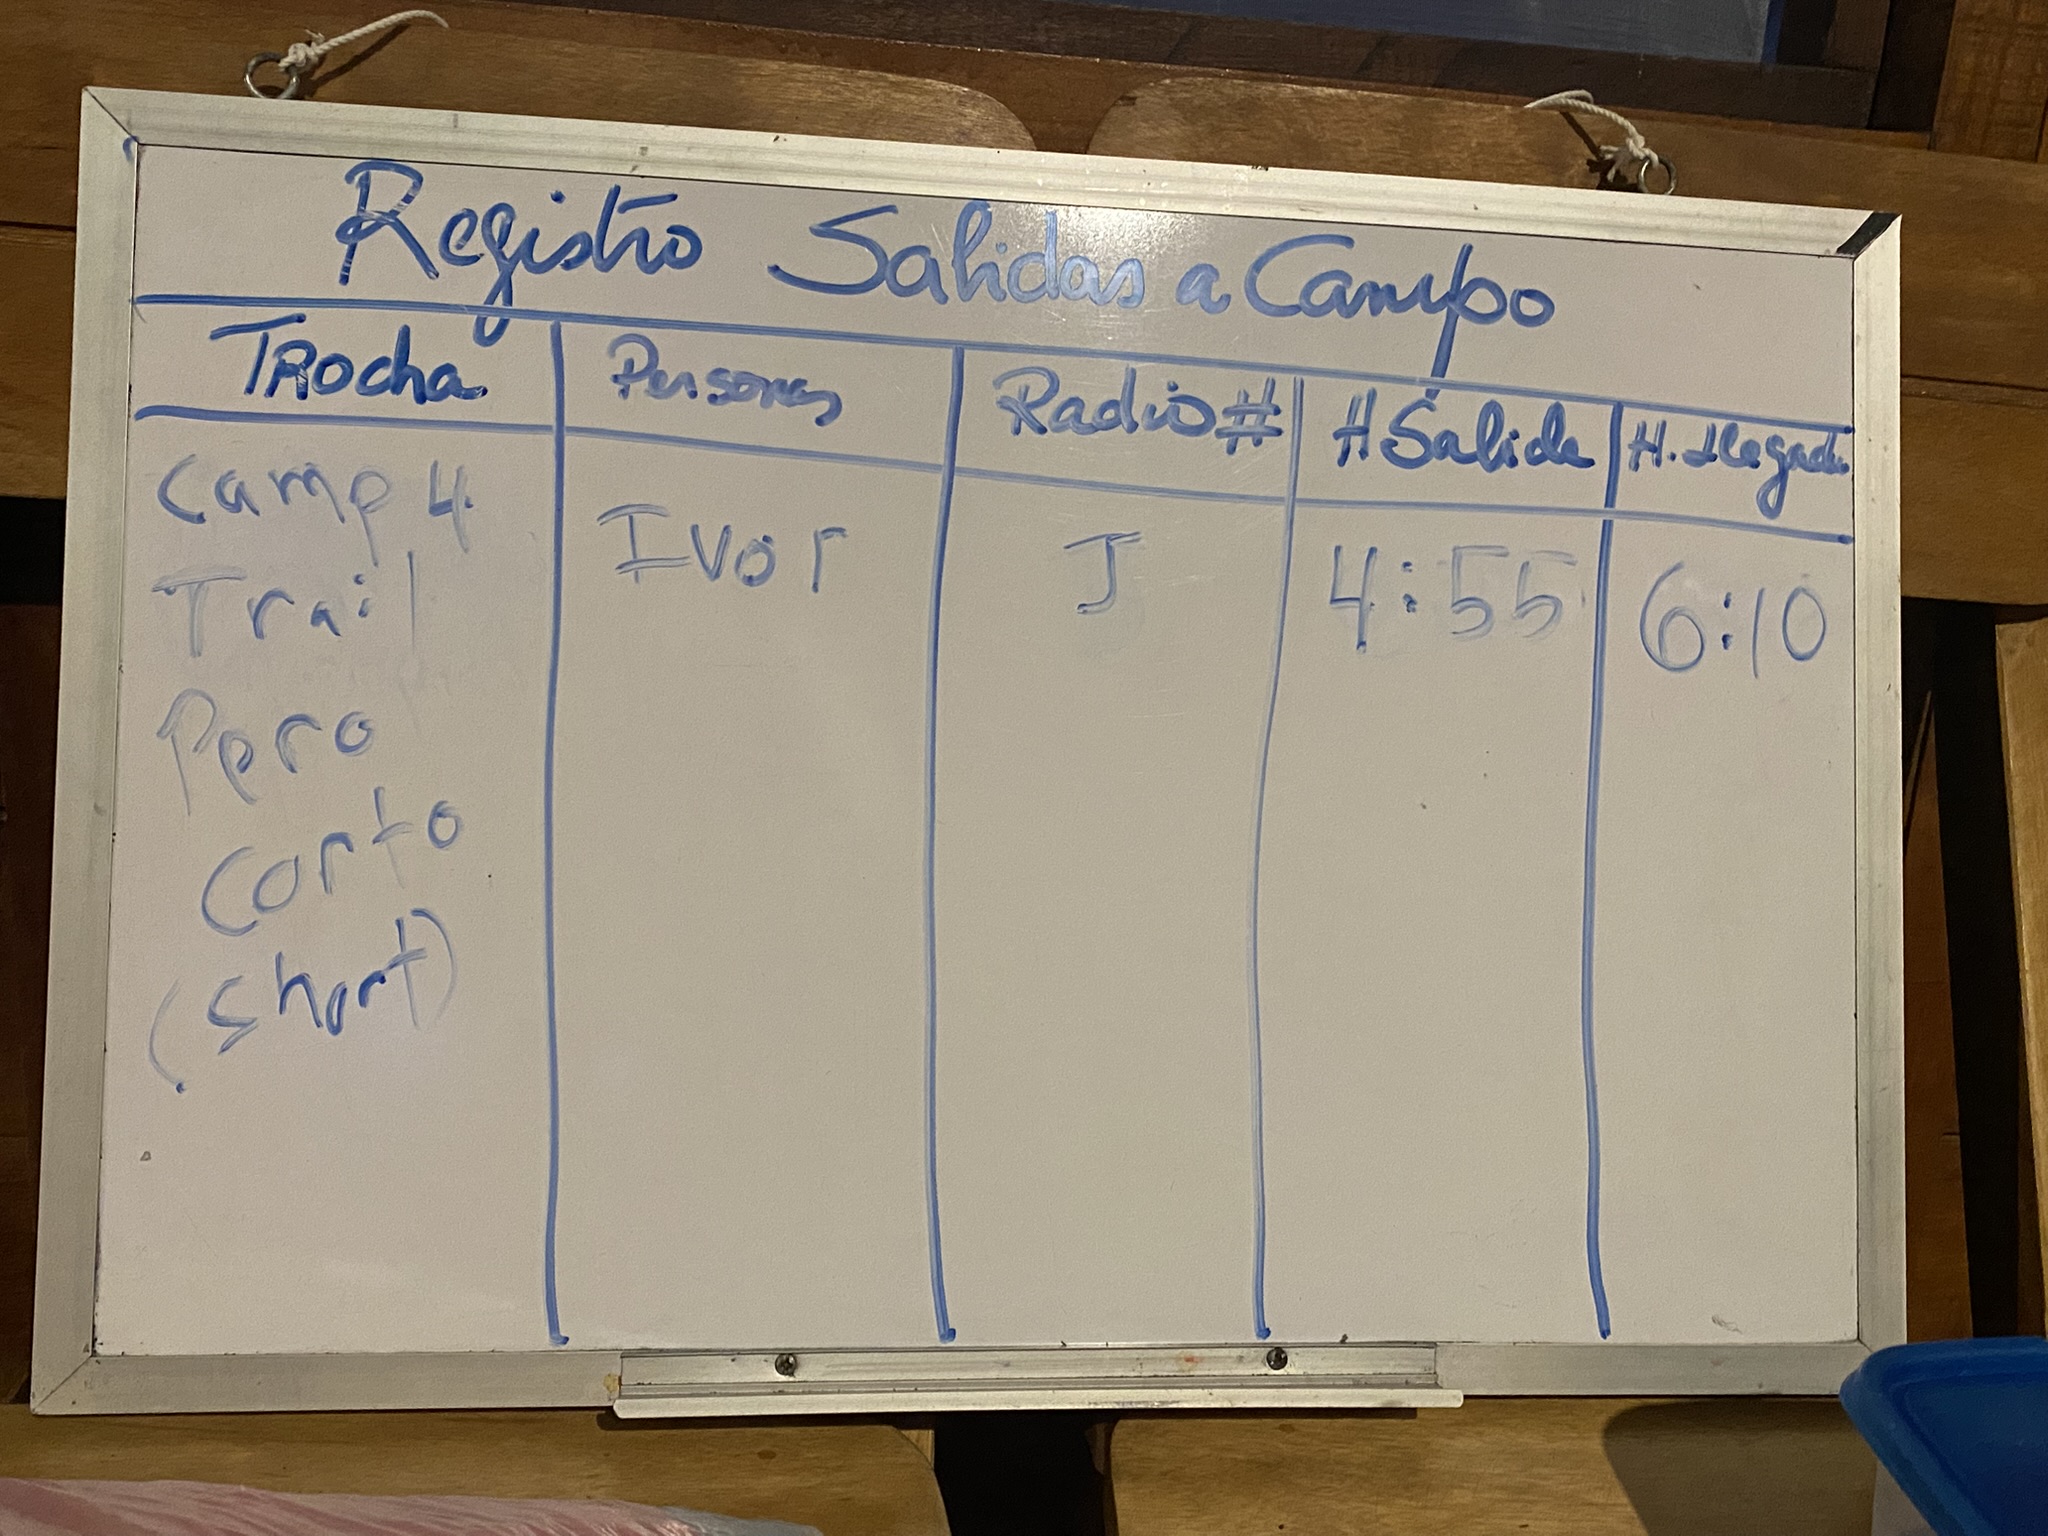 Registro Salidas a Campo
TROcha Personas Radio # H Salida H. Llegada
Camp 4 Ivor J 4:55 6:10
Trail
Pero
corto
(short)